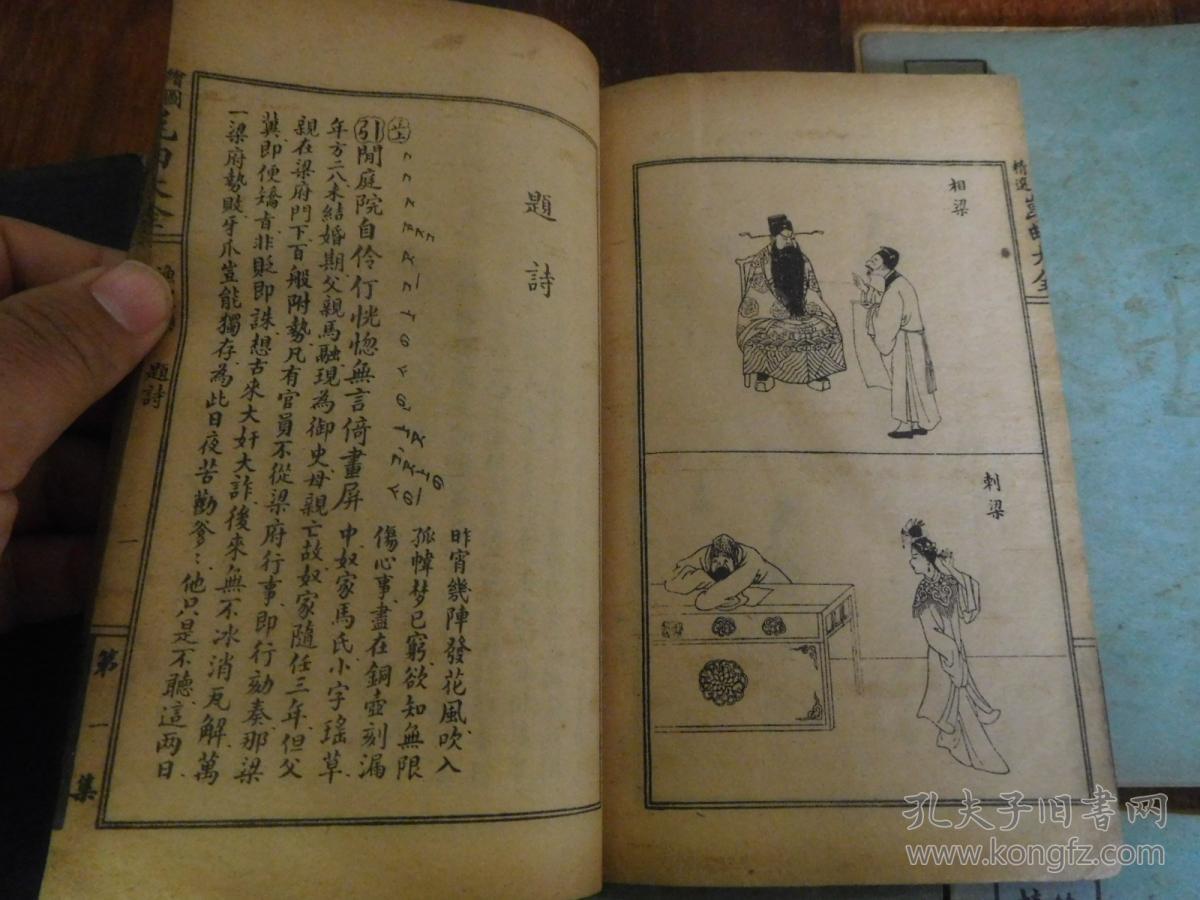 精選崑曲大全
相梁
刺梁
題詩
引閒庭院自伶仃恍惚無言倚畫屏
昨宵幾陣發花風吹入
孤幃梦已窮欲知無限
傷心事盡在銅壺刻漏
中奴家馬氏小字瑤草
年方二八未結婚期父親馬融現為御史母親亡故奴家隨任三年但父
親在梁府門下百般附勢凡有官員不從梁府行事即行劾奏那梁
冀即便矯旨非貶即誅想古來大奸大詐後來無不冰消瓦解萬
一梁府勢敗牙爪豈能獨存為此日夜苦勸爹〻他只是不聽這兩日
繪圖
大全
題詩
一
第一集
孔夫子旧书网
www.kongfz.com